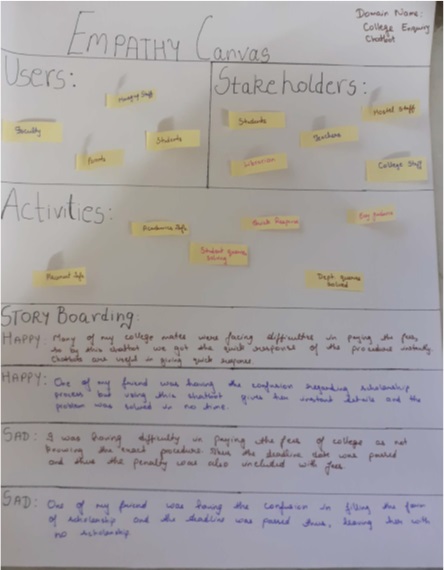 EMPATHY Canvas
Domain Name:
College Enquiry
Chatbot
Users:
Faculty
Students
Stakeholders:
Students
Teachers
Hostel Staff
Librarian
College Staff
Activities:
Student queries
solving
Quick Response
Dept. queries
solved
STORY Boarding:
HAPPY: Many of my college mates were facing difficulties in paying the fees,
so by this chatbot we got the quick response of the procedure instantly.
Chatbots are useful in giving quick response.
HAPPY: One of my friend was having the confusion regarding scholarship
process but using this chatbot gives her instant details and the
problem was solved in no time.
SAD: I was having difficulty in paying the fees of college as not
knowing the exact procedure. Then the deadline date was passed
and thus the penalty was also included with fees.
SAD: One of my friend was having the confusion in filling the form
of scholarship and the deadline was passed thus, leaving her with
no scholarship.